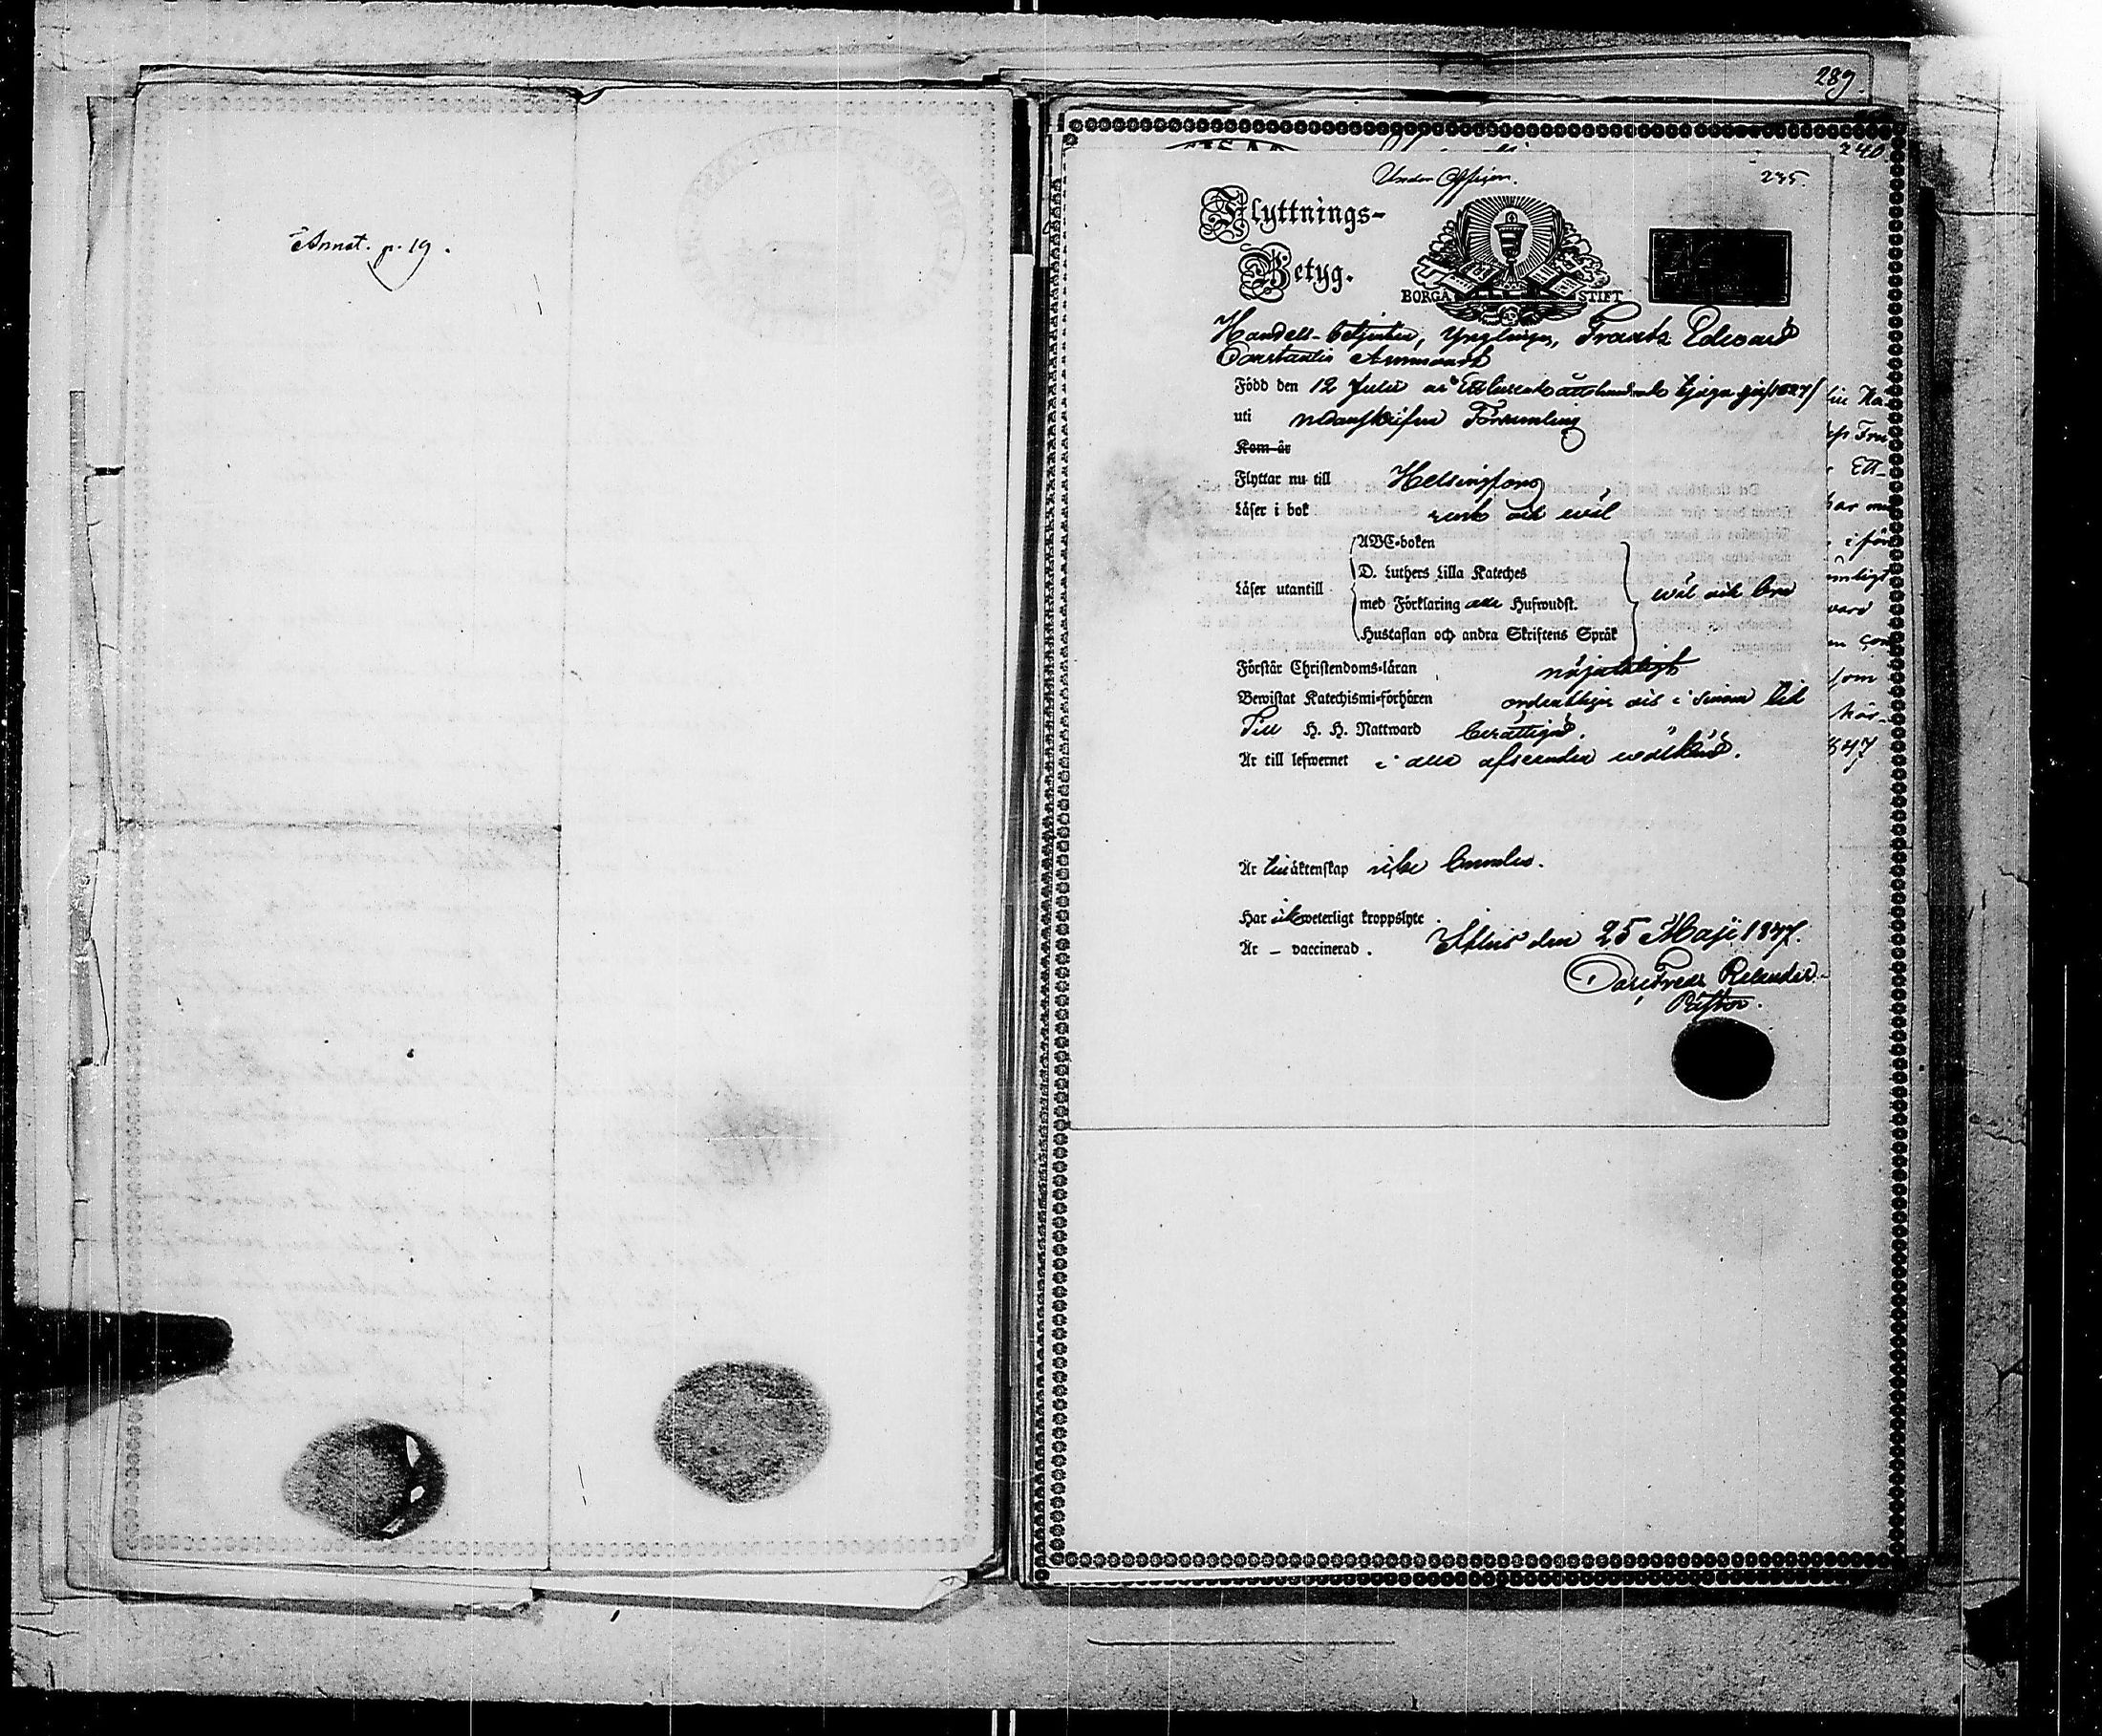 Annot. p. 19.
289.
240
Under Offizier.
235.
Flyttnings-
Betyg.
BORGÅ STIFT
Handels-betjenten, Ynglingen, Frantz Edward
Constantin
Född den 12 Julii år Ettusende åttahundrade tjugu sju /1827/
uti nedanskrifne Församling
Kom år
Flyttar nu till Helsingfors
Läser i bok rent och wäl
Läser utantill
ABC-boken
D. Luthers Lilla Kateches
med Förklaring alla Hufwudst.
Hustaflan och andra Skriftens Språk
wäl och bra
Förstår Christendoms-läran nöjaktligt
Bewistat Katechismi-förhören ordentligen och i sinom tid
Till H. H. Nattward berättigad.
Är till lefwernet i alla afseenden wälkänd.
Är till äktenskap icke bunden.
Har ick weterligt kroppslyte
Är - vaccinerad. den 25 Maji 1847.
Relander
Pastor.
lin Ha
Fru
Ett-
har
i för
ward
som
847